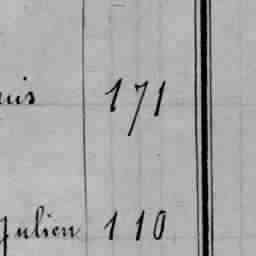 171
Julien 110